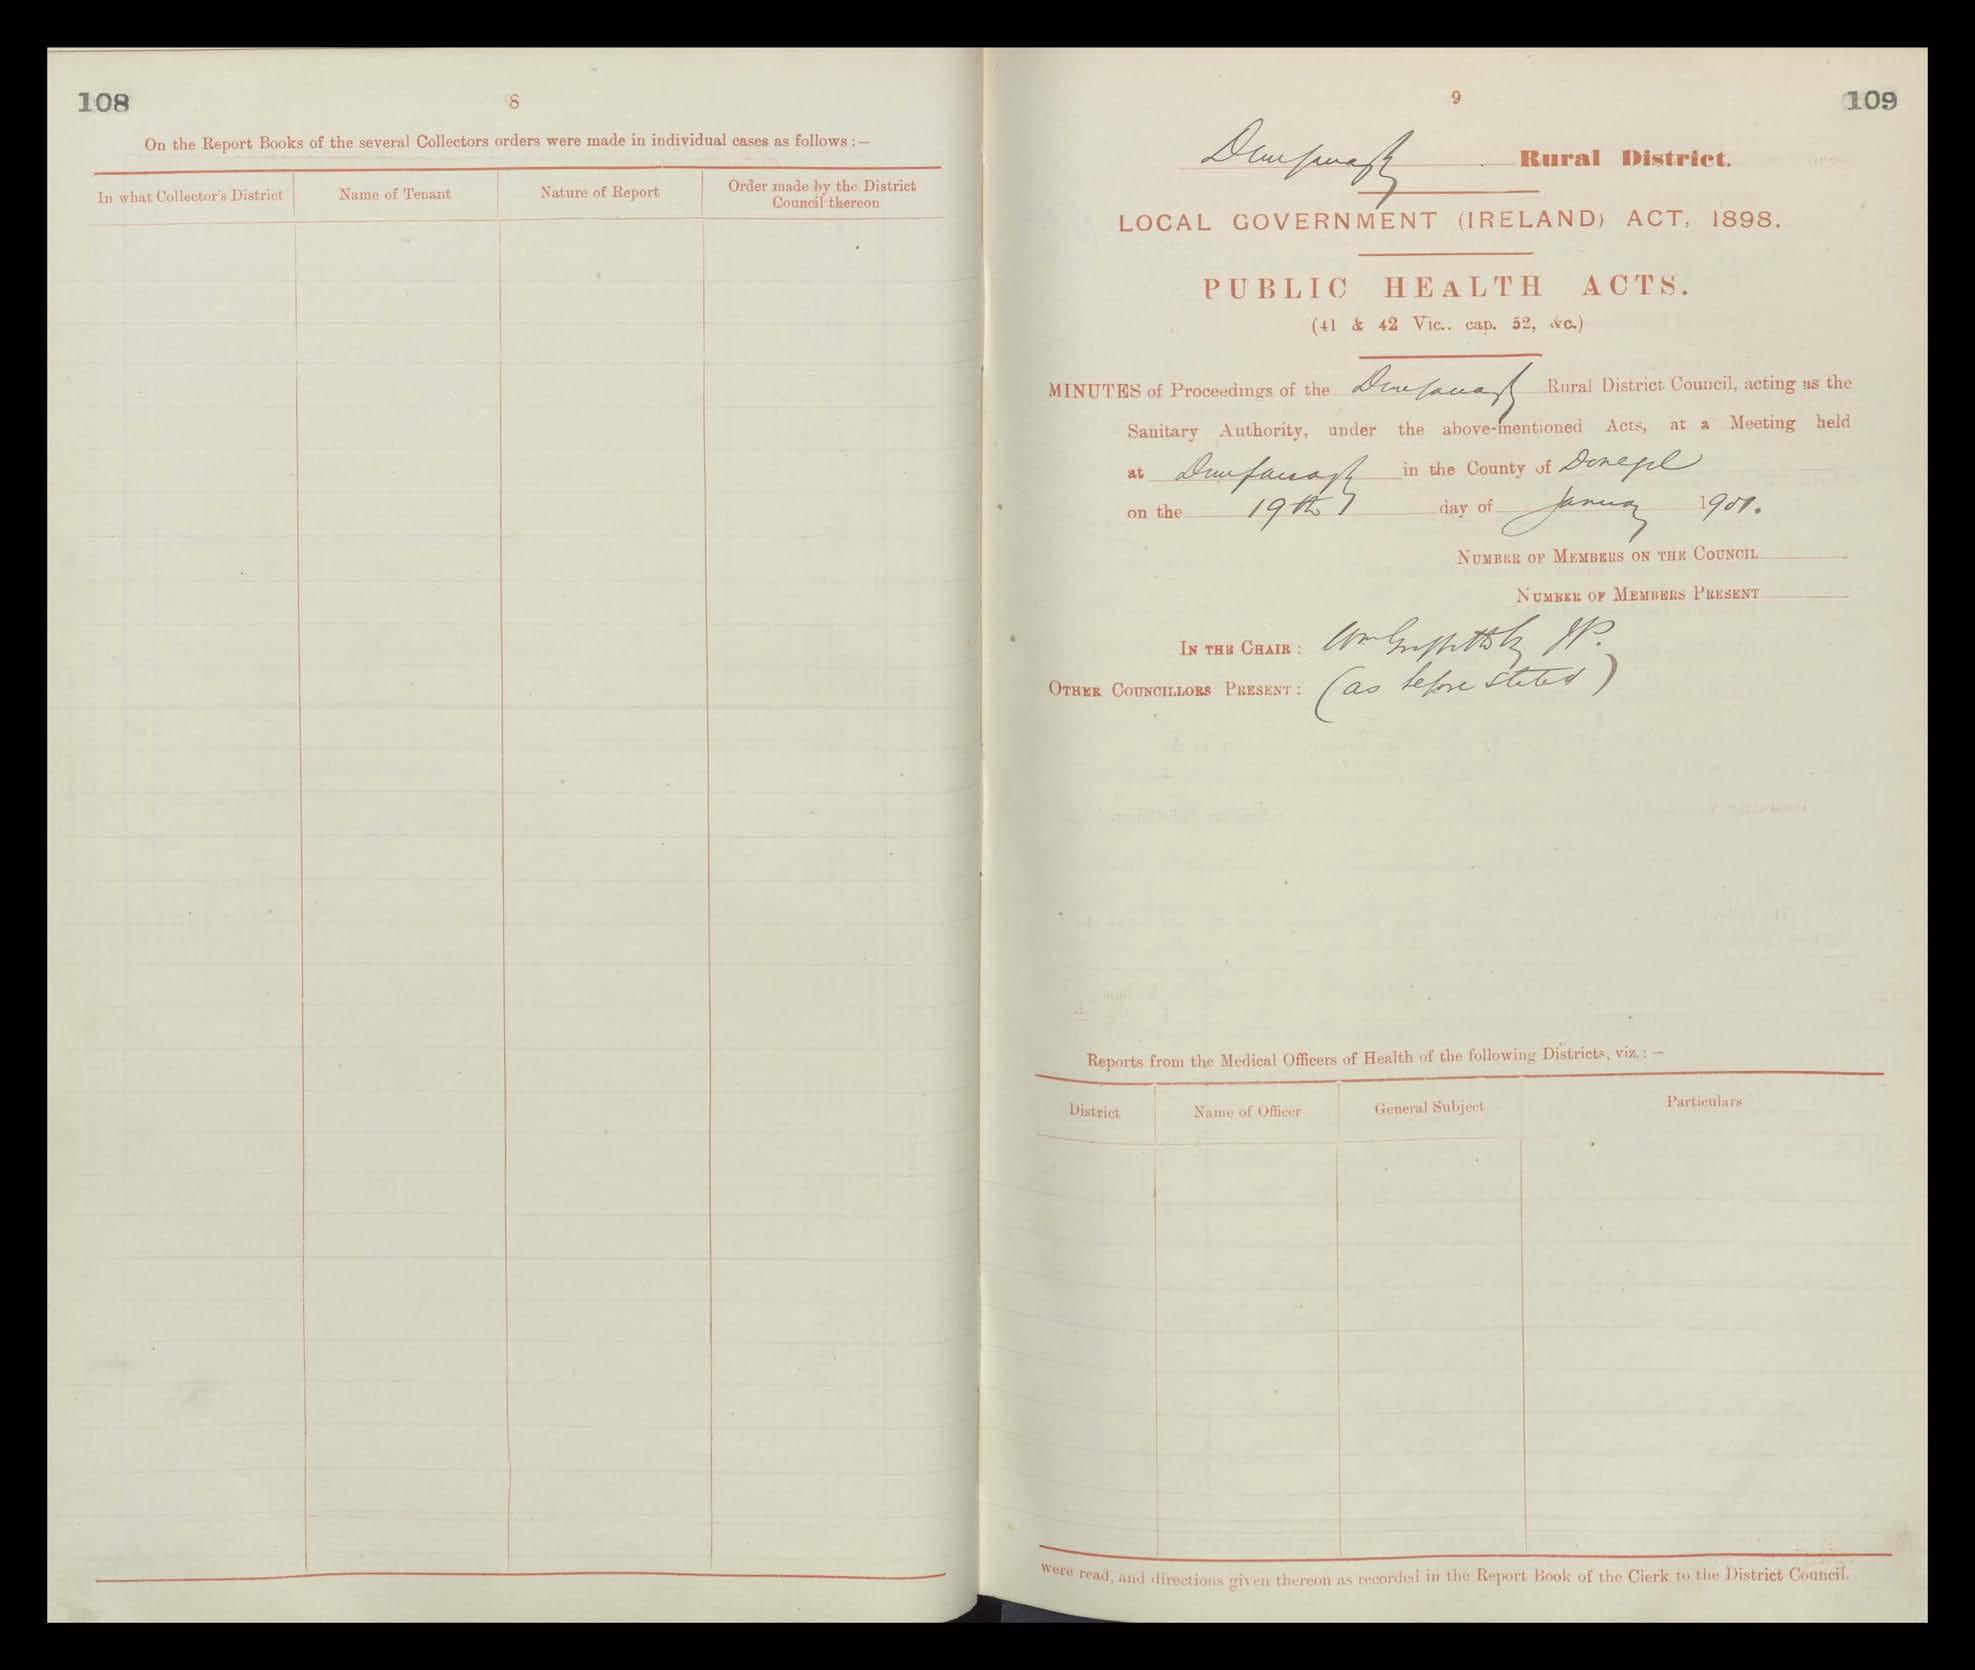 108
8
On the Report Books of the several Collectors orders were made in individual cases as follows :—
In what Collector's District
Name of Tenant
Nature of Report
Order made by the District
Council thereon
9
109
Dunfanaghy Rural District.
LOCAL GOVERNMENT (IRELAND) ACT, 1898.
PUBLIC HEALTH ACTS.
(41 & 42 Vic.. cap. 52, &c.)
MINUTES of Proceedings of the Dunfanaghy Rural District Council, acting as the
Sanitary Authority, under the above-mentioned Acts, at a Meeting held
at Dunfanaghy in the County of Donegal
on the 19th day of January 1901.
NUMBER OF MEMBERS ON THE COUNCIL
NUMBER OF MEMBERS PRESENT
IN THE CHAIR : Wm JP.
OTHER COUNCILLORS PRESENT : (as before stated)
Reports from the Medical Officers of Health of the following Districts, viz. :—
District
Name of Officer
General Subject
Particulars
were read, and directions given thereon as recorded in the Report Book of the Clerk to the District Council.